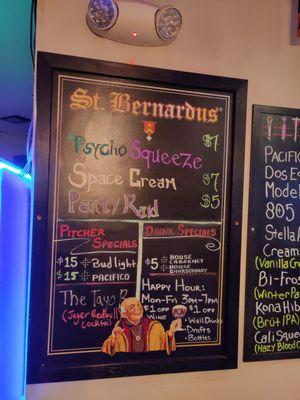 St. Bernardus
Psycho Squeeze $7
Space Cream $7
Panty Raid $5
Pitcher Specials
$15 Bud light
$15 PACIFICO
The Tayo
(Jager Redbull cocktail)
Drink Specials
$5 HOUSE CABERNET
HOUSE CHARDONNAY
Happy Hour:
Mon-Fri 3pm-7pm
$1 OFF WINE
$1 OFF
• Well Drinks
• Drafts
• Bottles
PACIFIC
Dos E
Mode
805
Stella
Cream
(Vanilla Cre
Bi-Fros
(Winter Pa
Kona Hib
(Brut IPA)
Cali Sque
(Hazy Blood